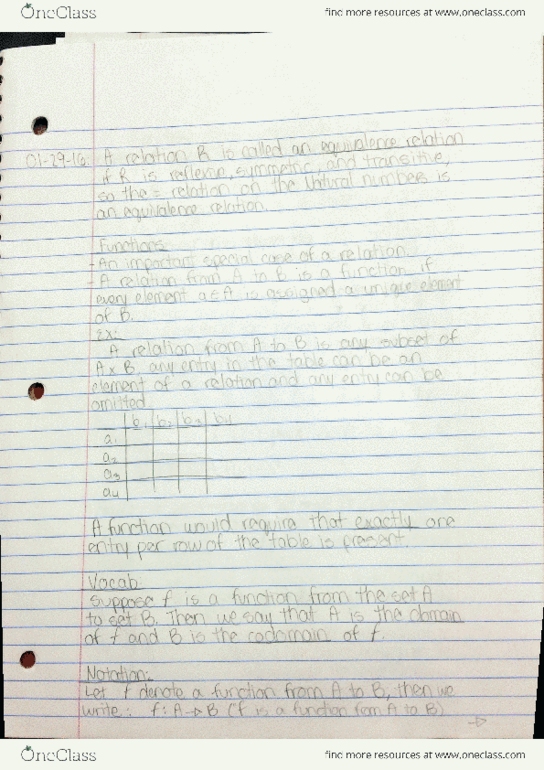 OneClass
find more resources at www.oneclass.com
01-29-16: A relation R is called an equivalence relation
if R is reflexive, symmetric, and transitive,
so the = relation on the natural numbers is
an equivalence relation.
Functions:
-An important special case of a relation.
-A relation from A to B is a function if
every element a∈A is assigned a unique element
of B.
Ex:
A relation from A to B is any subset of
A x B, any entry in the table can be an
element of a relation and any entry can be
omitted
b1 b2 b3 b4
a1
a2
a3
a4
A function would require that exactly one
entry per row of the table is present.
Vocab:
suppose f is a function from the set A
to set B. Then we say that A is the domain
of f and B is the codomain of f.
Notation:
Let f denote a function from A to B, then we
write: f: A→B ("f is a function fom A to B)
→
OneClass
find more resources at www.oneclass.com